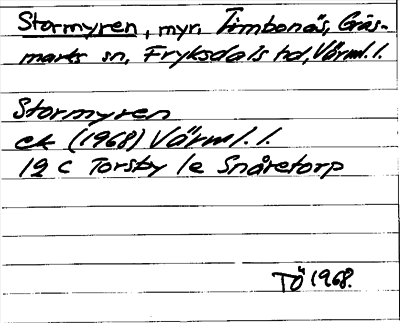 Stormyren, myr. Timbonäs, Gräs-
marks sn, Fryksdals hd, Värml. l.
Stormyren
ek (1968) Värml. l.
12 C Torsby 1e Snåretorp
TÖ 1968.